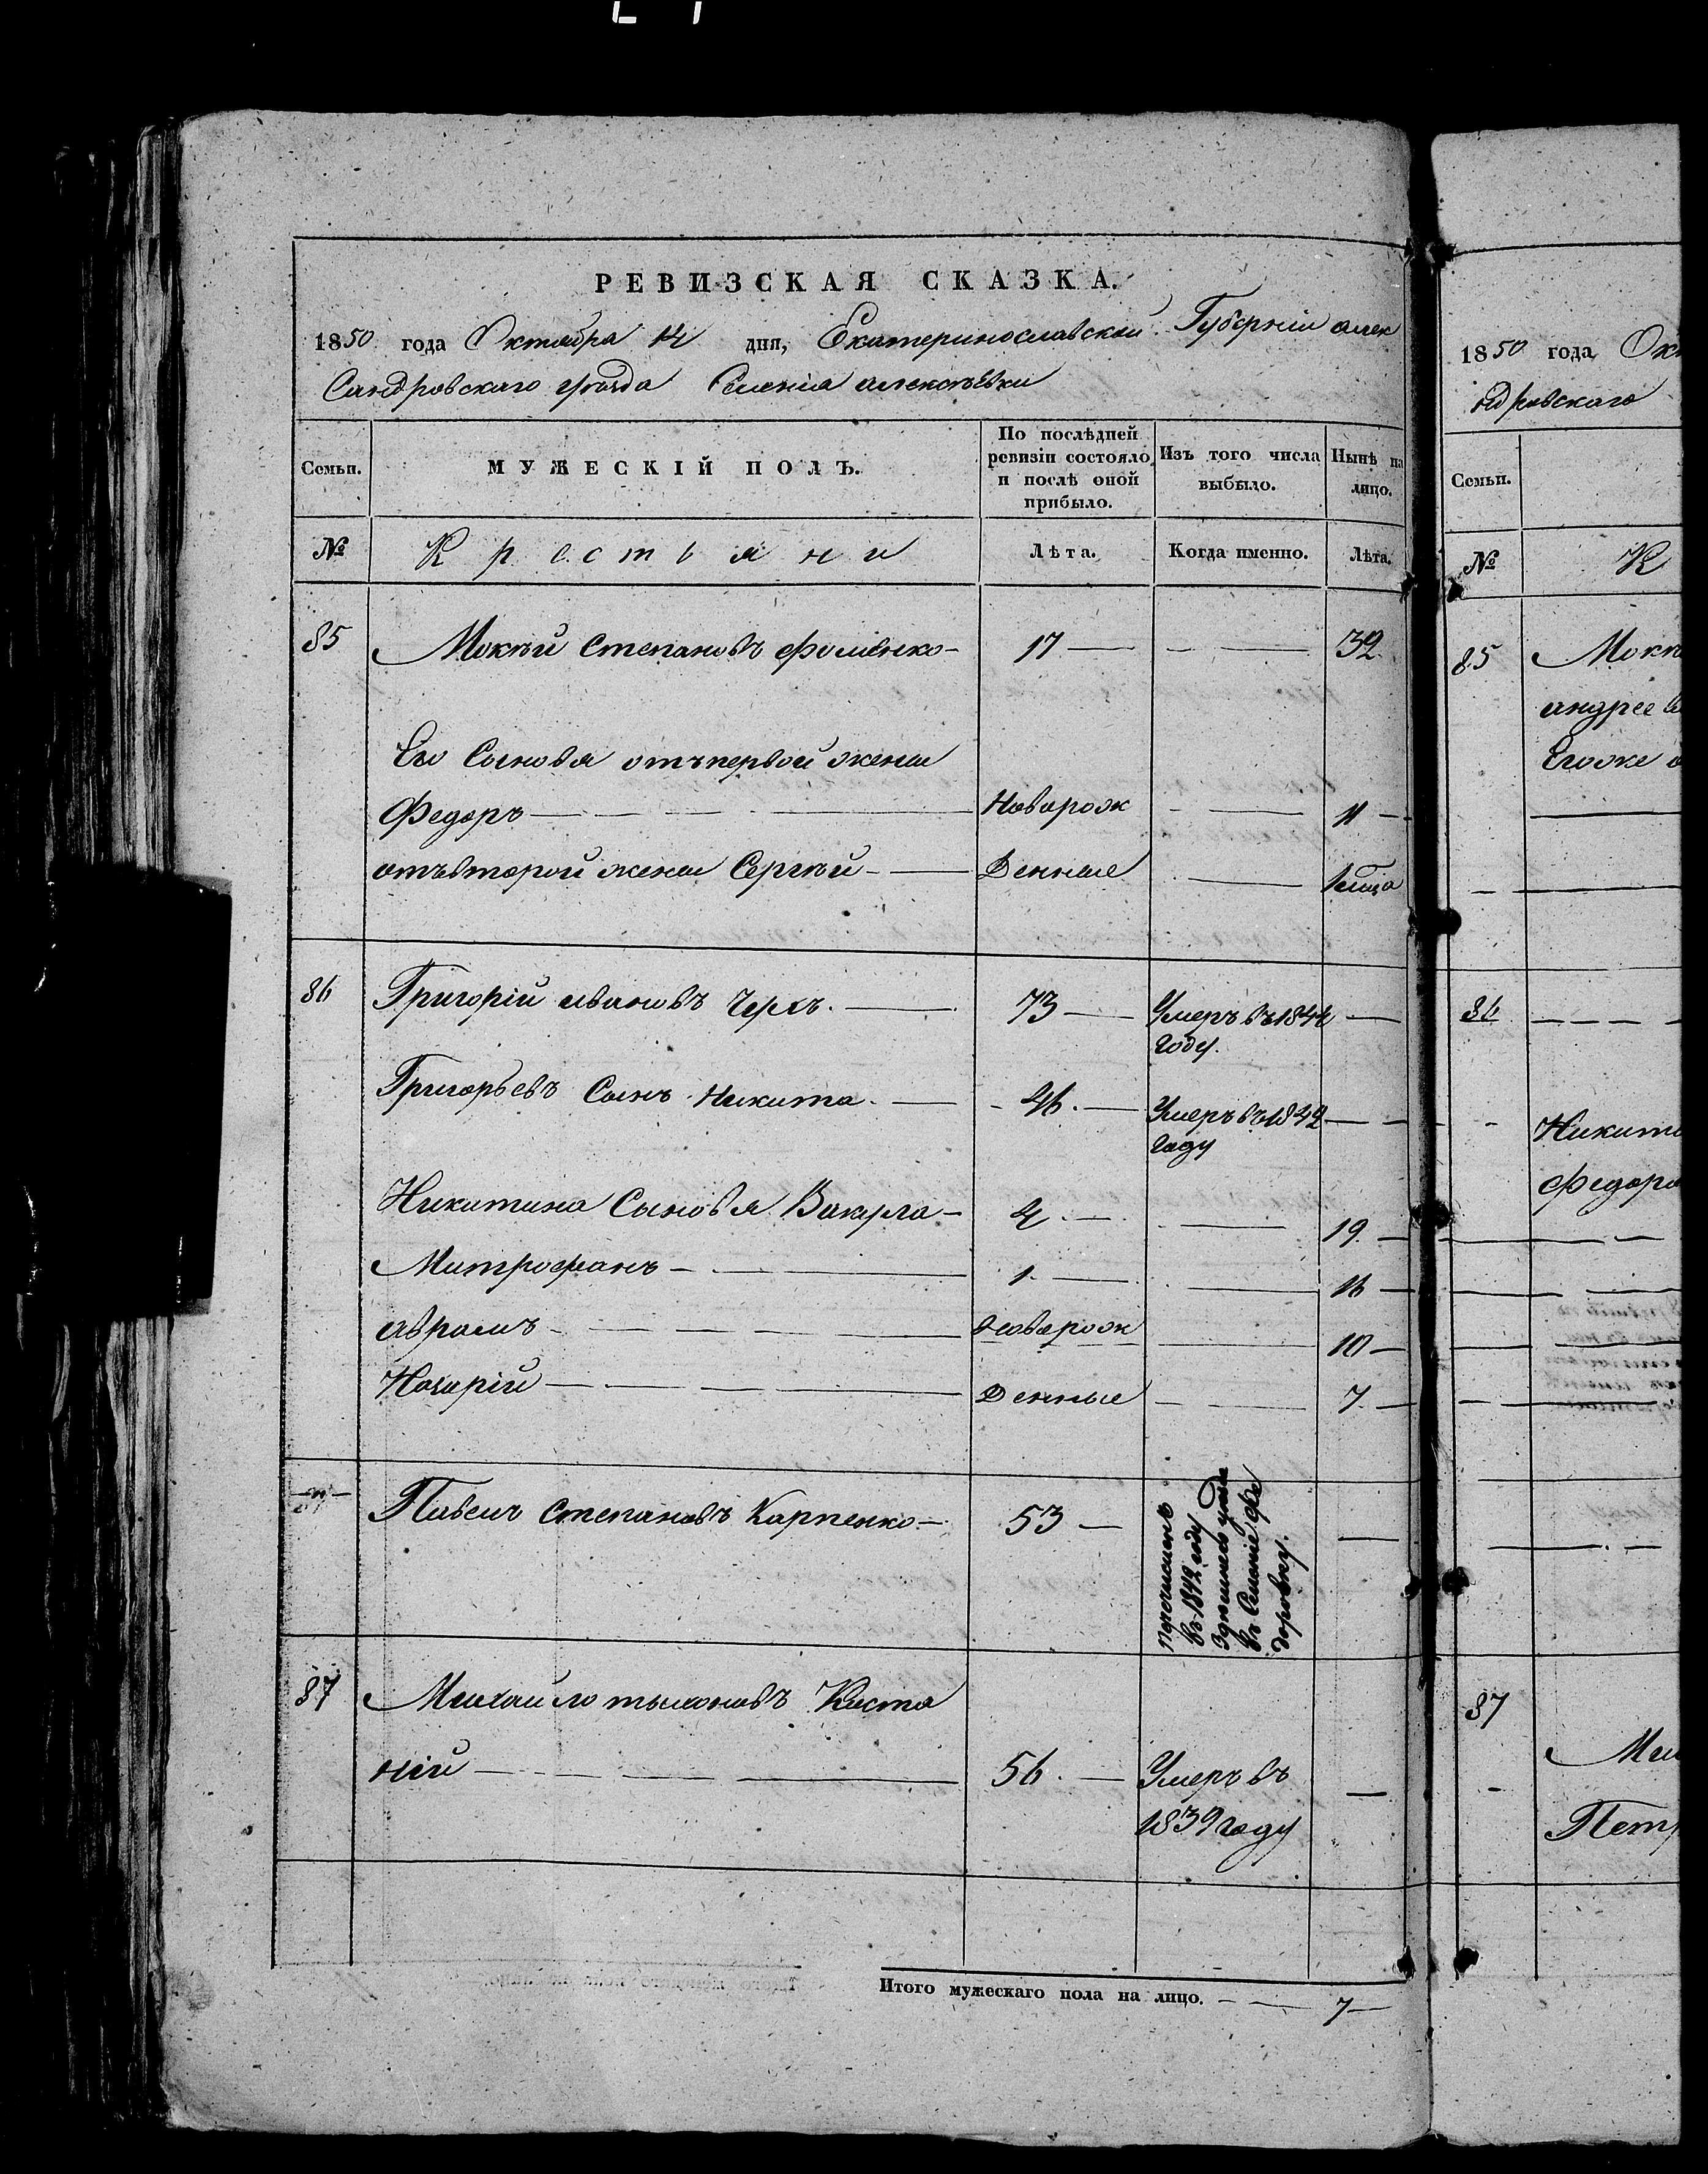 РЕВИЗСКАЯ СКАЗКА.
1850 года Октября 14 дня, Екатеринославской Губерніи алек
Сандровскаго уѣзда Селенія алексѣевки
Семьи.
МУЖЕСКІЙ ПОЛЪ.
По послѣдней ревизіи состояло и послѣ оной прибыло.
Изъ того числа выбыло.
Нынѣ на лицо.
№
Крестьяни
Лѣта.
Когда именно.
Лѣта.
85 Мокѣй Степановъ Фоменко 17 32
Его Сыновя отъ первой жены
Федоръ Новорож 11
отъ второй жены Сергѣй Денные
86 Григорій ивановъ 73 Умеръ въ 1844
году.
Григорьевъ Сынъ Никита 46 Умеръ въ 1842
году
Никитина Сыновя Вакула 4 19
Митрофанъ 1 16
аврамъ Новорож 10
Назарій Денные 7
Павелъ Степановъ Карпенко 53
Перечисленъ
въ 1842 году
Здѣшнего уѣзда
въ Селеніе Фе
доровку.
87 Михайло тихоновъ Коста
ній 56 Умеръ въ
1839 году
Итого мужескаго пола на лицо. 7
1850 года Ок
ндровскаго
Семьи.
№ К
85 Мокѣ
андрее
Егоже
86
Никити
Федора
87
Ми
Петр